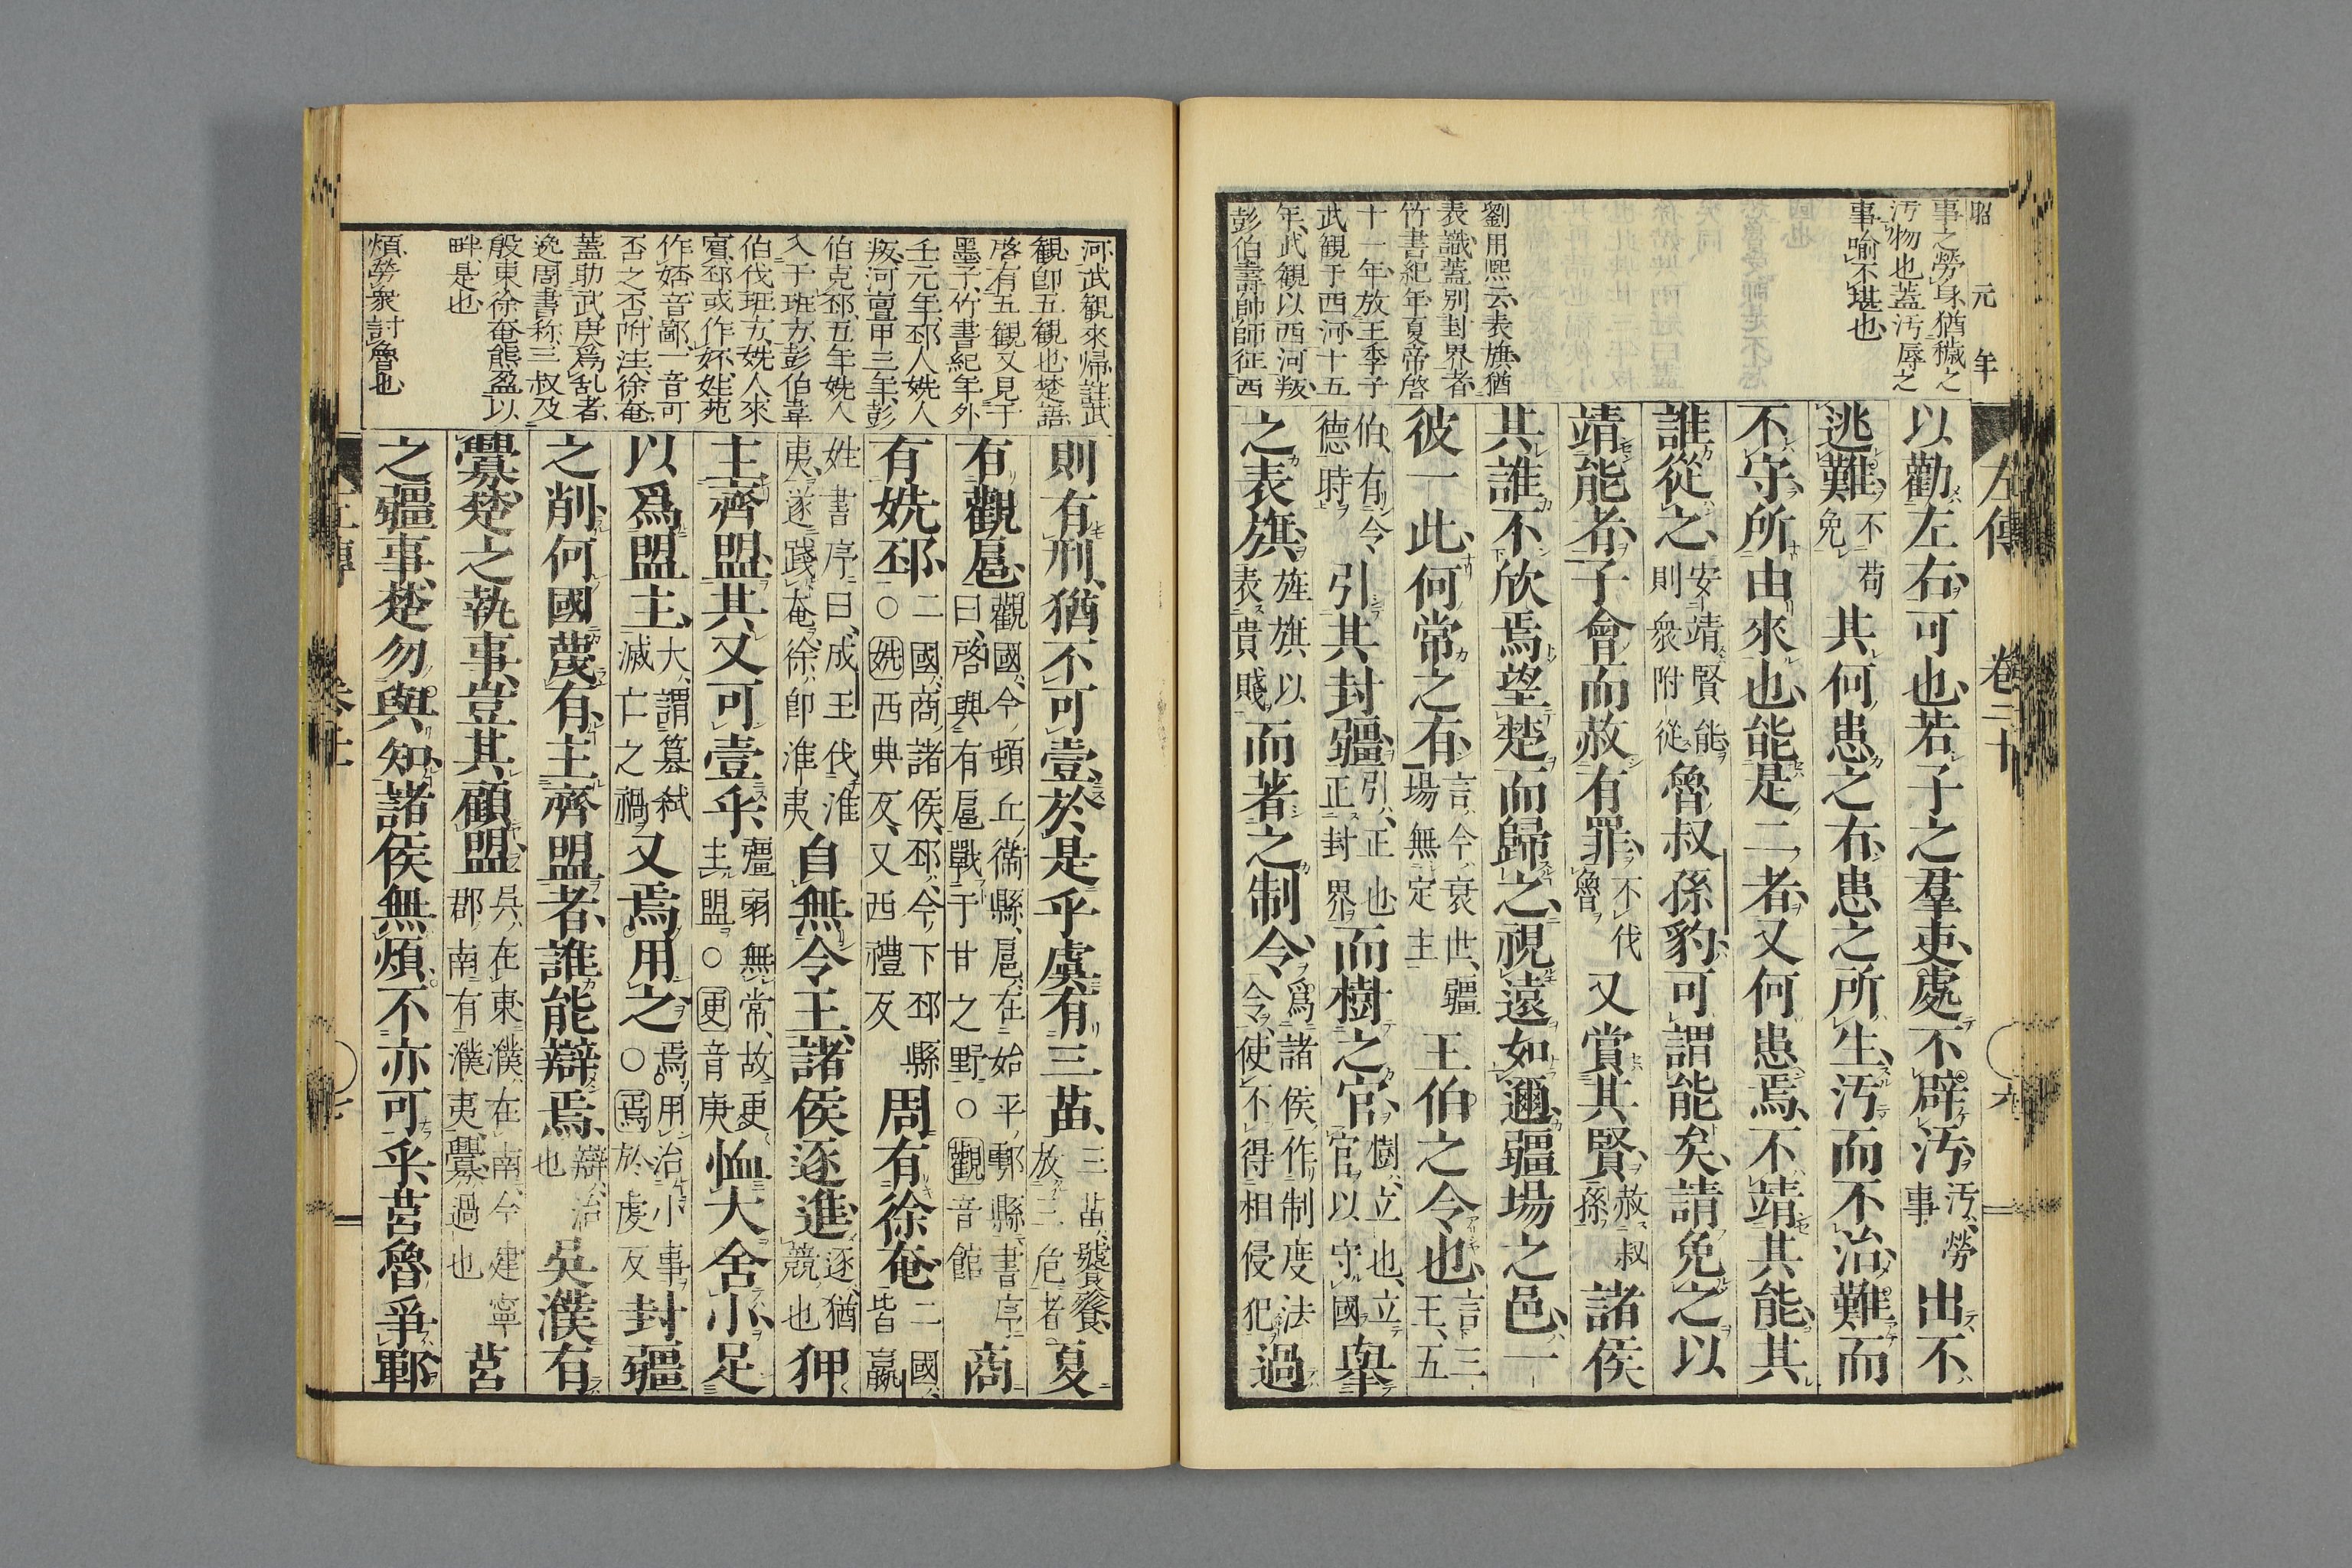 昭元年
事之勞身猶穢之
汚物也蓋汚辱之
事喻不堪也
劉用熙云表旗猶
表識蓋別封界者
竹書紀年夏帝啓
十一年放王季子
武觀于西河十五
年武觀以西河叛
彭伯壽帥師征西
左傳 卷二十 六
以勸左右可也若子之羣吏處不辟汚汚勞事出不
逃難不苟免其何患之有患之所生汚而不治難而
不守所由來也能是二者又何患焉不靖其能其
誰從之安靖賢能則衆附從魯叔孫豹可謂能矣請免之以
靖能者子會而赦有罪不伐魯又賞其賢赦叔孫諸侯
其誰不欣焉望楚而歸之視遠如邇疆場之邑一
彼一此何常之有言今衰世疆場無定主王伯之令也言三王五
伯有令德時引其封疆引正也正封界而樹之官樹立也立官以守國舉
之表旗旌旗以表貴賤而著之制令爲諸侯作制度法令使不得相侵犯過
河武觀來歸註武
觀卽五觀也楚語
啓有五觀又見于
墨子竹書紀年外
壬元年邳人姺人
叛河亶甲三年彭
伯克邳五年姺人
入于班方彭伯韋
伯伐班方姺人來
賓邳或作妚姓苑
作㛅音鄙一音可
否之否附注徐奄
蓋助武庚爲乱者
逸周書称三叔及
殷東徐奄熊盈以
畔是也
煩勞衆討魯也
則有刑猶不可壹於是乎虞有三苗三苗饕餮放三危者夏
有觀扈觀國今頓丘衞縣扈在始平鄠縣書序曰啓與有扈戰于甘之野○觀音館商
有姺邳二國商諸侯邳今下邳縣○姺西典反又西禮反周有徐奄二國皆嬴
姓書序曰成王伐淮夷遂踐奄徐卽淮夷自無令王諸侯逐進逐猶競也狎
主齊盟其又可壹乎彊弱無常故更主盟○更音庚恤大舍小足
以爲盟主大謂篡弑滅亡之禍又焉用之焉用治小事○焉於虔反封疆
之削何國蔑有主齊盟者誰能辯焉辯治也吳濮有
釁楚之執事豈其顧盟吳在東濮在南今建寧郡南有濮夷釁過也莒
之疆事楚勿與知諸侯無煩不亦可乎莒魯爭鄆